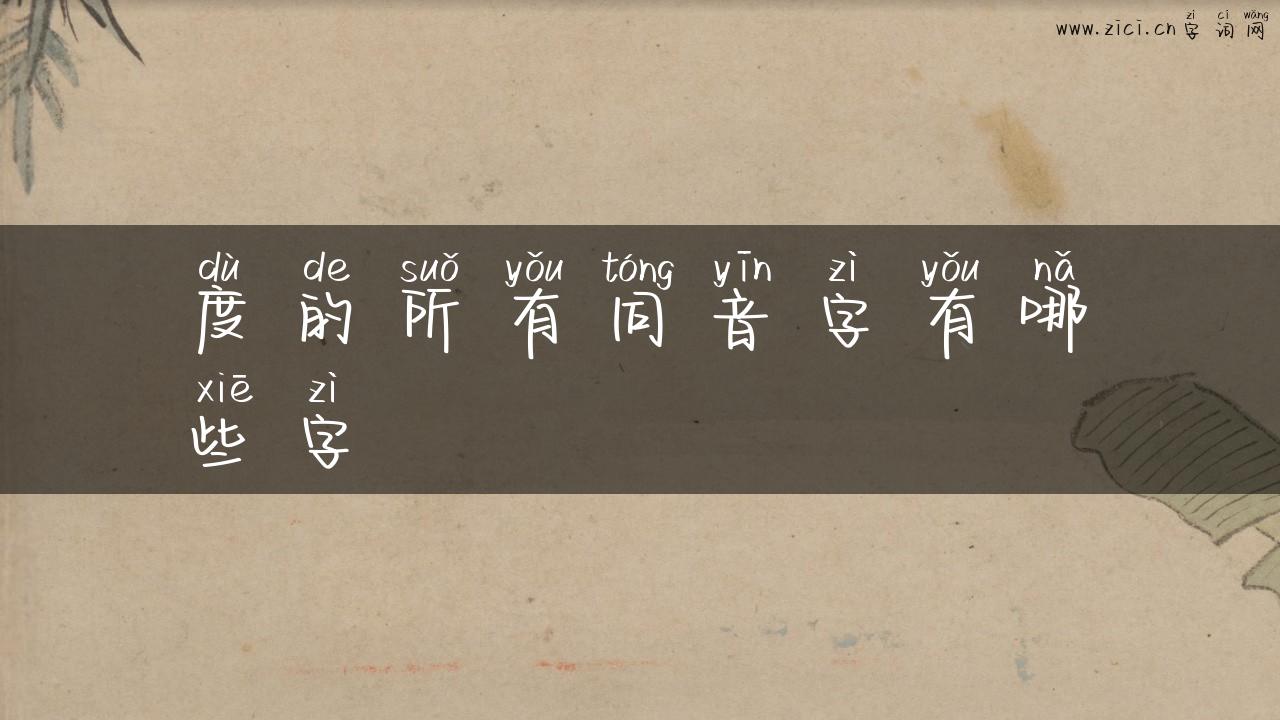 zì cí wǎng
www.zici.cn 字词网
dù de suǒ yǒu tóng yīn zì yǒu nǎ
度的所有同音字有哪
xiē zì
些字